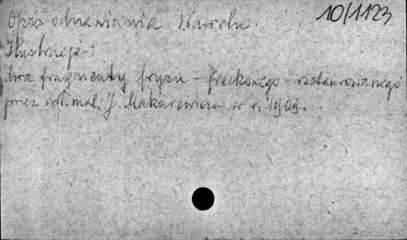 10/1123
Opis odnawiania Wawelu.
Ilustracje:
dwa fragmenty fryzu - freskowego - restaurowanego
przez art. mal. J. Makarewicza w r. 1909.